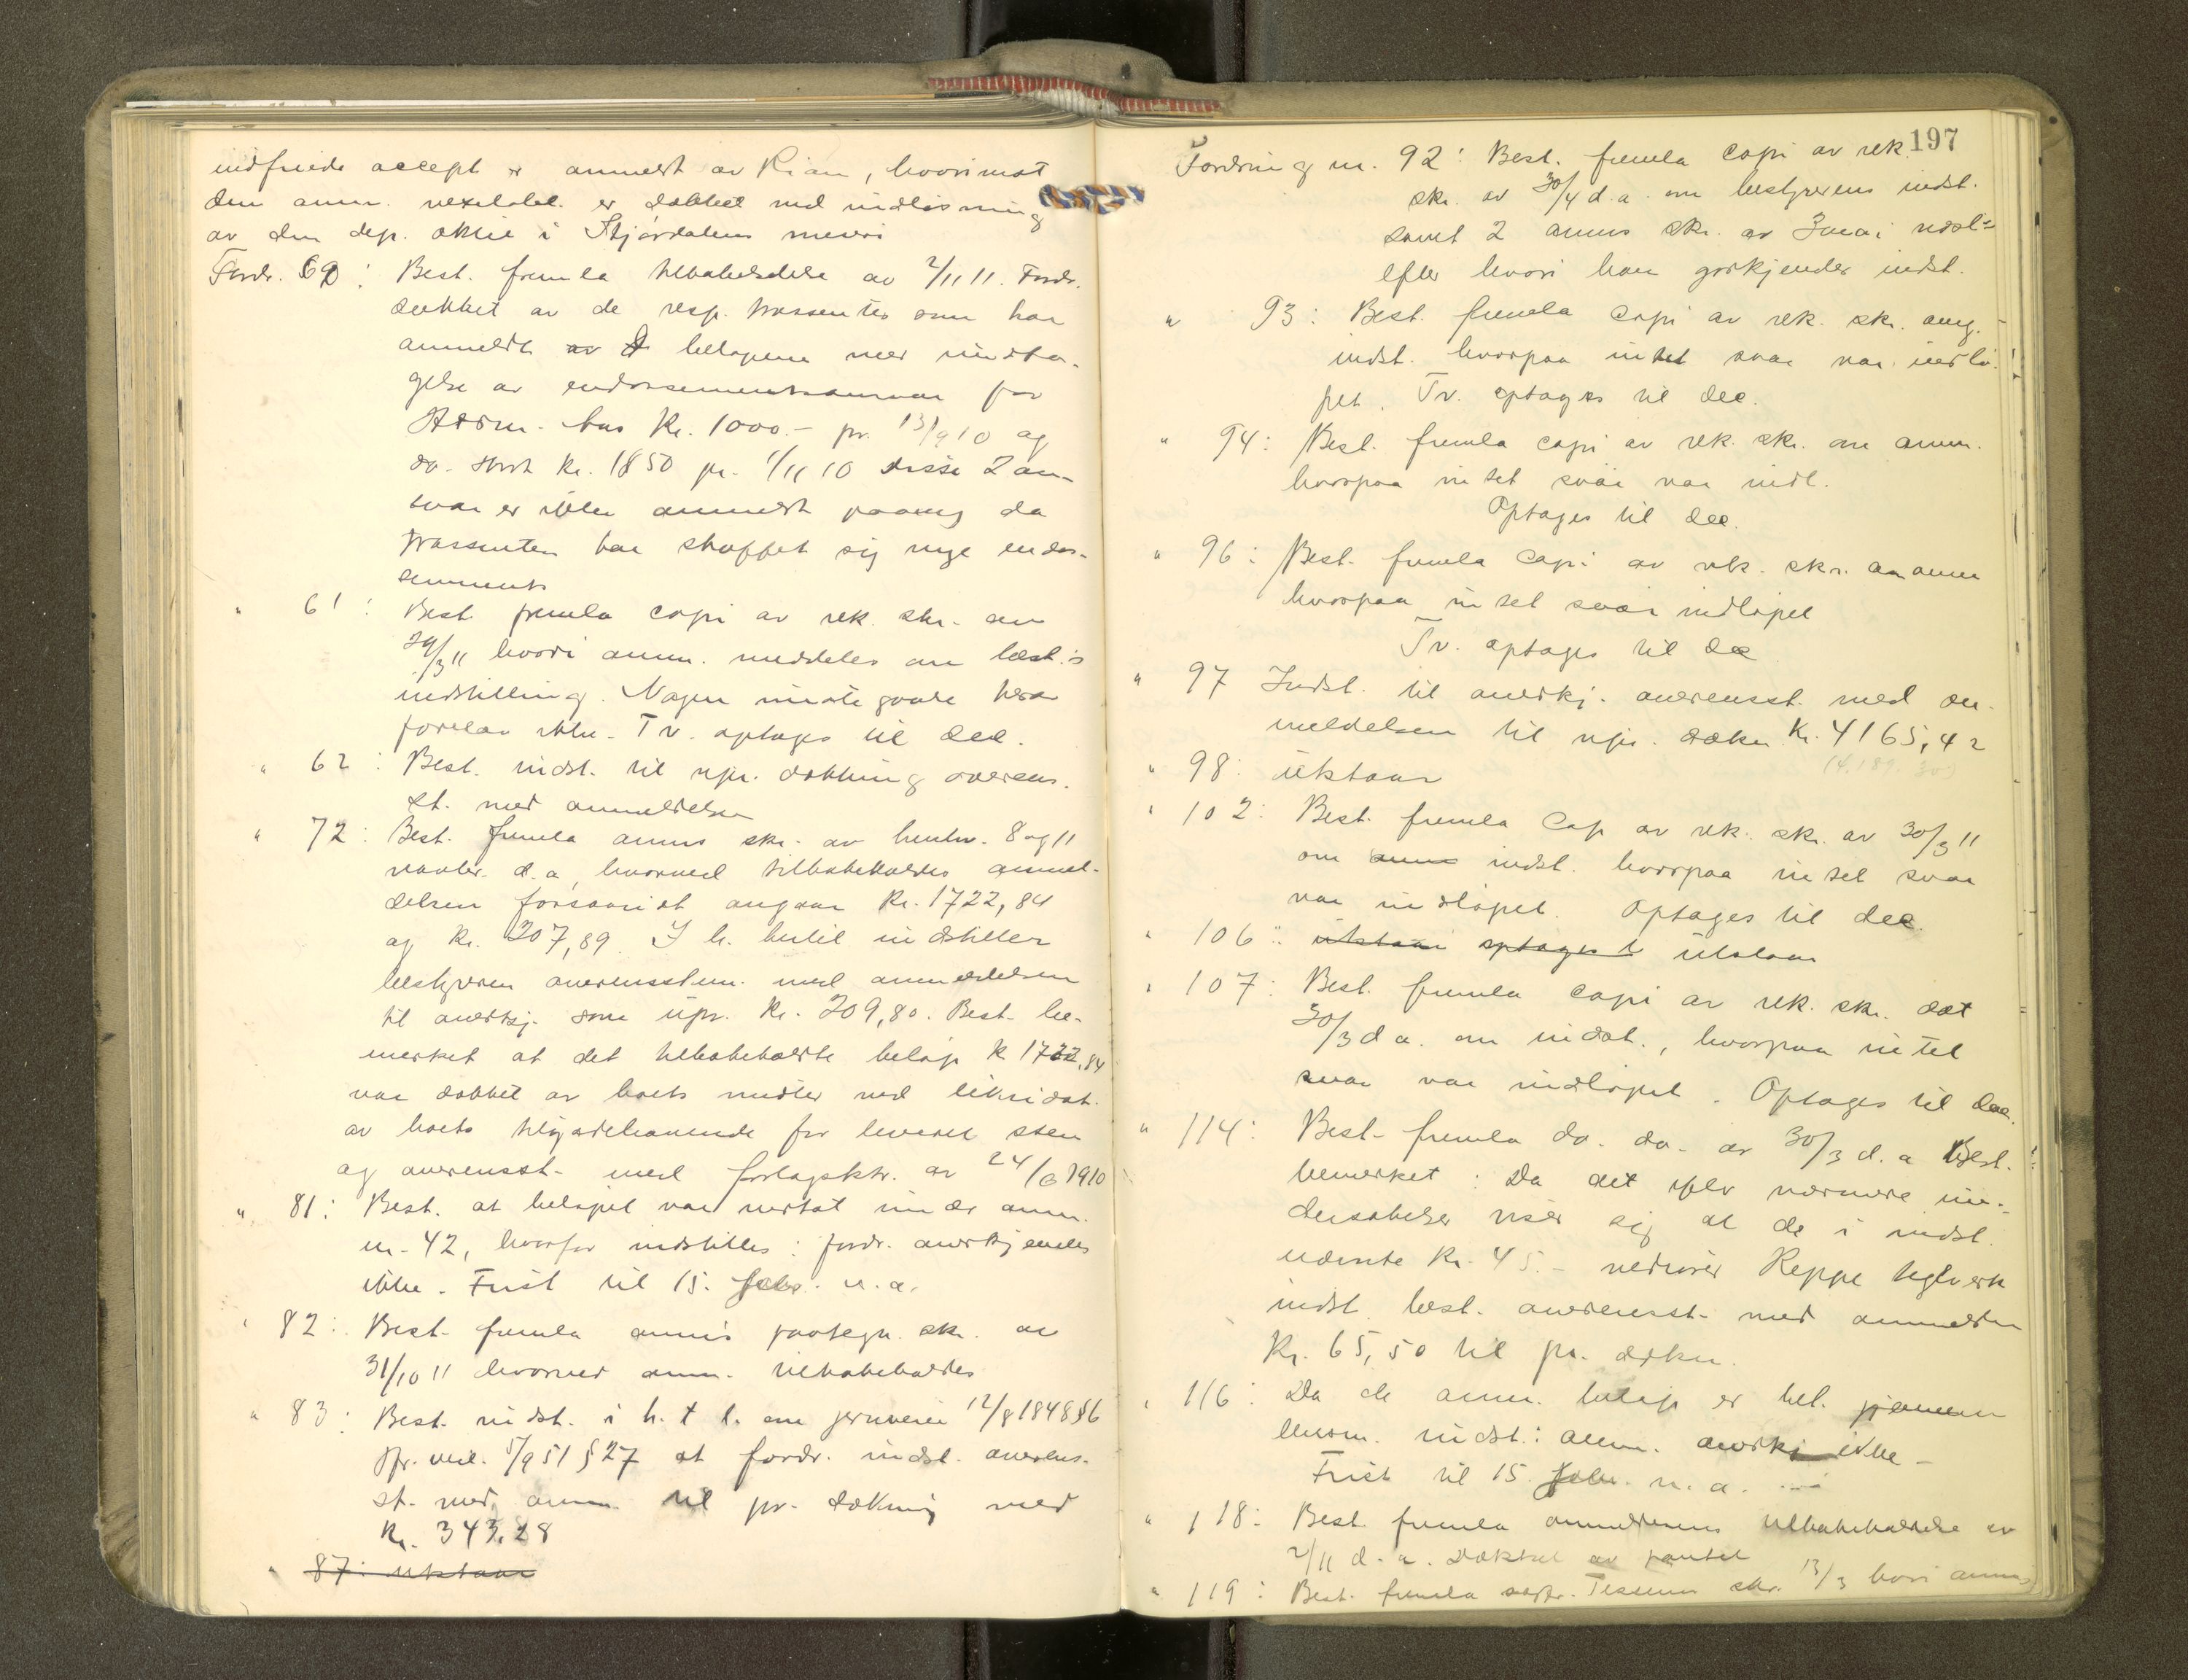 indfriede accept er anmeldt av Rian, hvorimot
den anm. vexelobl. er dækket ved indløsning
av den dep. aktie i Stjørdalens meieri
Fordr. 60: Best. fremla tilbakekaldelse av 2/11 11. Fordr.
dækket av de resp. trassenter som har
anmeldt av beløpene med undta-
gelse av endossementsansvar for
kr. 1000.- pr. 13/9 10 og
do. stort kr. 1850 pr. 1/11 10 disse 2 an-
svar er ikke anmeldt paany da
trassenten har skaffet sig nye endos-
sements
" 61: Best. fremla copi av rek. skr. av
29/3 11 hvori anm. meddeles om best.s
indstilling. Nogen imøtegaaelse herav
forelaa ikke. Tv. optages til dec.
" 62: Best. indst. til upr. dækning overens-
st. med anmeldelsen
" 72: Best. fremla anms skr. av henhv. 8 og 11
novbr. d.a., hvorved tilbakekaldes anmel-
delsen forsaavidt angaar kr. 1722,84
og kr. 207,89. I h. hertil indstiller
bestyreren overensstem. med anmeldelsen
til anerkj. som upr. kr. 209,80. Best. be-
merket at det tilbakekaldte beløp kr 1722,84
var dækket av boets midler ved likvidat.
av boets tilgodehavende for leveret sten
og overensst. med forlagsktr. av 24/6 1910
" 81: Best. at beløpet var medtat under anm.
nr. 42, hvorfor indstilles: fordr. anerkjendes
ikke. Frist til 15. febr. n.a.
" 82: Best. fremla anm's paategn. skr. av
31/10 11 hvorved anm. tilbakekaldes
" 83: Best. indst. i h. t. l. om jernveie 12/8 1848 § 6
jfr. ved. 5/9 51 § 27 at fordr. indst. overens-
st. med anm. til pr. dækning med
kr. 343,28
" 87: utstaar
197
Fordring nr. 92: Best. fremla copi av rek.
skr. av 30/4 d.a. om bestyrerens indst.
samt 2 anms skr. av 3 mai
efter hvori han godkjender indst.
" 93: Best. fremla copi av rek. skr. ang.
indst. hvorpaa intet svar var indlø-
pet. Tv. optages til dec.
" 94: Best. fremla copi av rek. skr. om anm.
hvorpaa intet svar var indl.
Optages til dec.
" 96: Best. fremla copi av rek. skr. om anm
hvorpaa intet svar indløpet
Tv. optages til dec
" 97 Indst. til anerkj. overensst. med an-
meldelsen til upr. dækn. kr. 4165,42
(4.189.30)
" 98: utstaar
" 102: Best. fremla Copi av rek. skr. av 30/3 11
om anms indst. hvorpaa intet svar
var indløpet. Optages til dec.
" 106: utstaar optages t utstaar
" 107: Best. fremla copi av rek. skr. dat
30/3 d a. om indst., hvorpaa intet
svar var indløpet. Optages til dec.
" 114: Best. fremla do. do. av 30/3 d.a Best.
bemerket: Da det efter nærmere un-
dersøkelser viser sig at de i indst.
nævnte kr. 45.- vedrører Reppe teglverk
indst. best. overensst. med anmeldn
Kr. 65,50 til pr. dækn.
" 116: Da de anm. beløp er bet. gjennem
indst.: anm. anerkj ikke -
Frist til 15. febr. n. a.
" 118: Best. fremla anmelderens tilbakekaldelse av
2/11 d.a. Dækket av pantet
" 119: Best. fremla sakfr. Tessem skr. 13/3 hvori anms